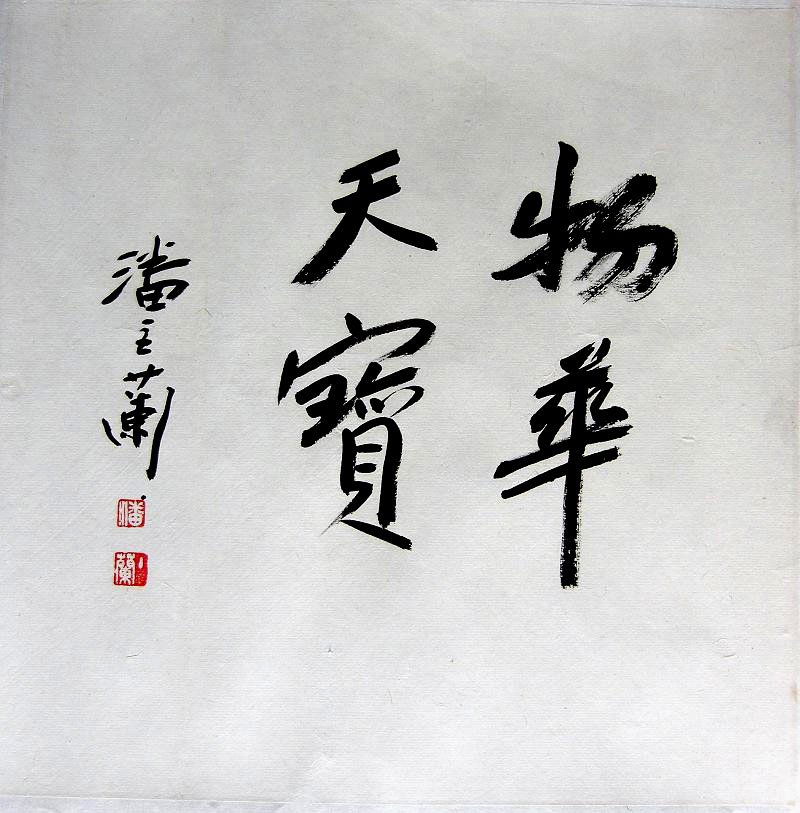 物華
天寶
潘主蘭
潘
蘭